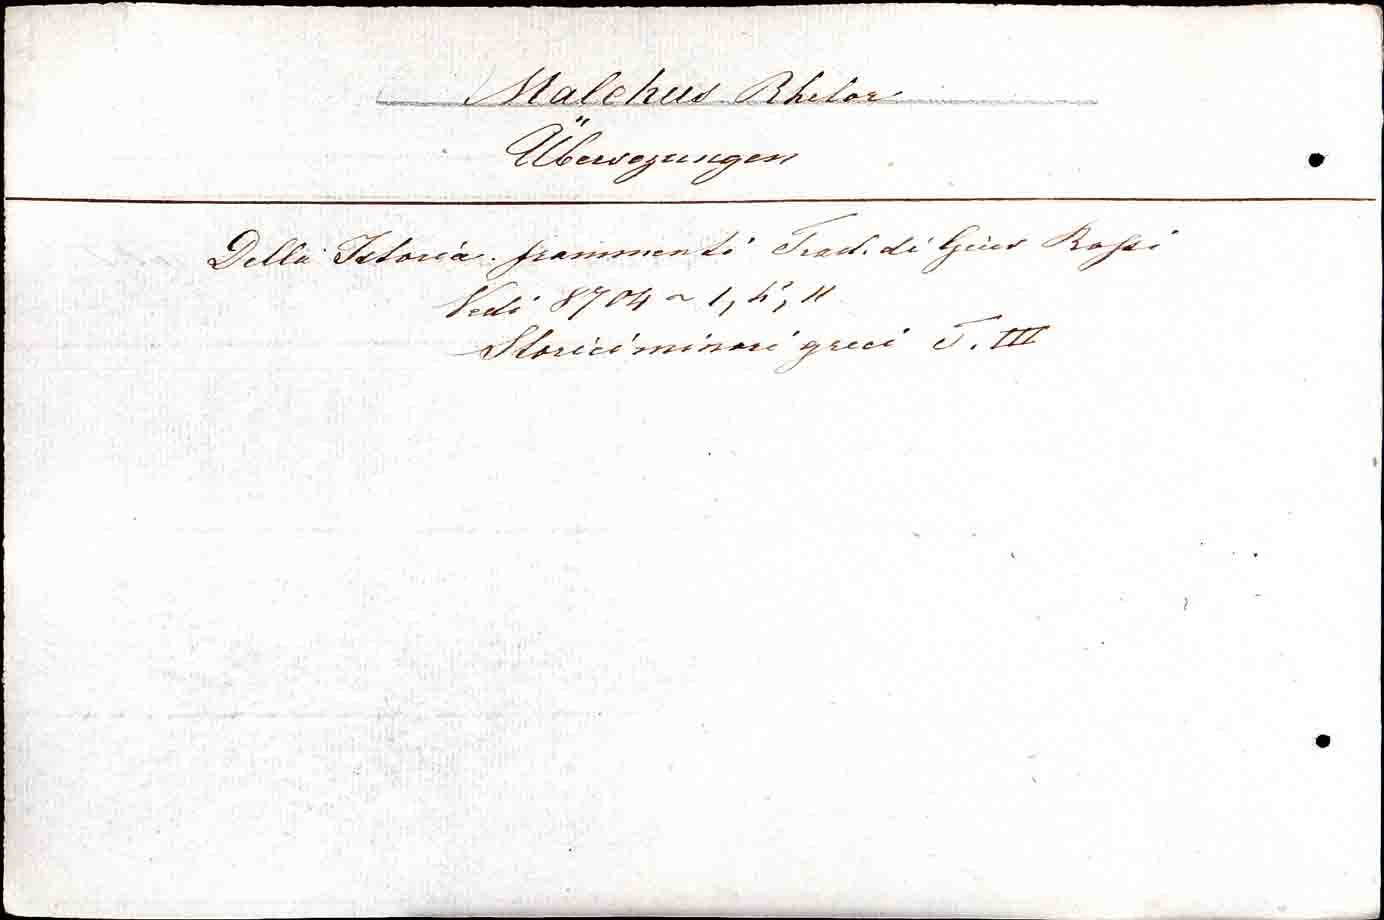 Malchus Rhetor
Übersezungen
Della Istoria. frammenti Trad. di Gius Rossi
Vedi 8704 ~ 1, h, 11
Storici minori greci T. III